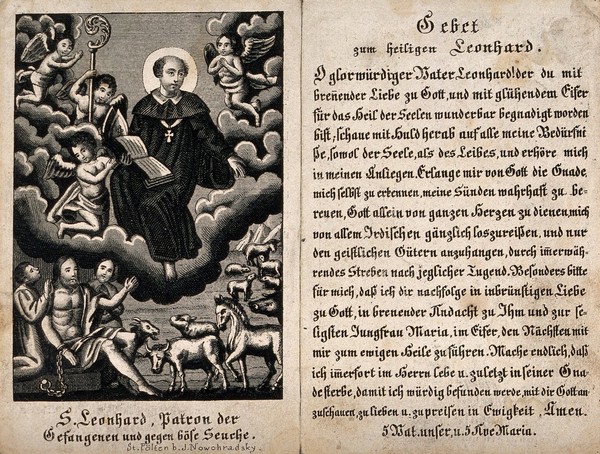 S. Leonhard, Patron der
Gefangenen und gegen böse Seuche.
St. Pölten b. J. Nowohradsky.
Gebet
zum heiligen Leonhard.
O glorwürdiger Vater, Leonhard! der du mit
breñender Liebe zu Gott, und mit glühendem Eifer
für das Heil der Seelen wunderbar begnadigt worden
bist, schaue mit Huld herab auf alle meine Bedürfni
ße, sowol der Seele, als des Leibes, und erhöre mich
in meinen Anliegen. Erlange mir von Gott die Gnade,
mich selbst zu erkennen, meine Sünden wahrhaft zu be-
reuen, Gott allein von ganzen Herzen zu dienen, mich
von allem Irdischen gänzlich loszureißen, und nur
den geistlichen Gütern anzuhangen, durch im̄erwäh-
rendes Streben nach jeglicher Tugend. Besonders bitte
für mich, daß ich dir nachfolge in inbrünstigen Liebe
zu Gott, in brenender Andacht zu Ihm und zur se-
ligsten Jungfrau Maria, im Eifer, den Nächsten mit
mir zum ewigen Heile zu führen. Mache endlich, daß
ich im̄erfort im Herrn lebe u. zuletzt in seiner Gna
de sterbe, damit ich würdig befunden werde, mit dir Gott an
zuschauen, zu lieben u. zu preisen in Ewigkeit, Amen.
5 Vat. unser, u. 5 Ave Maria.